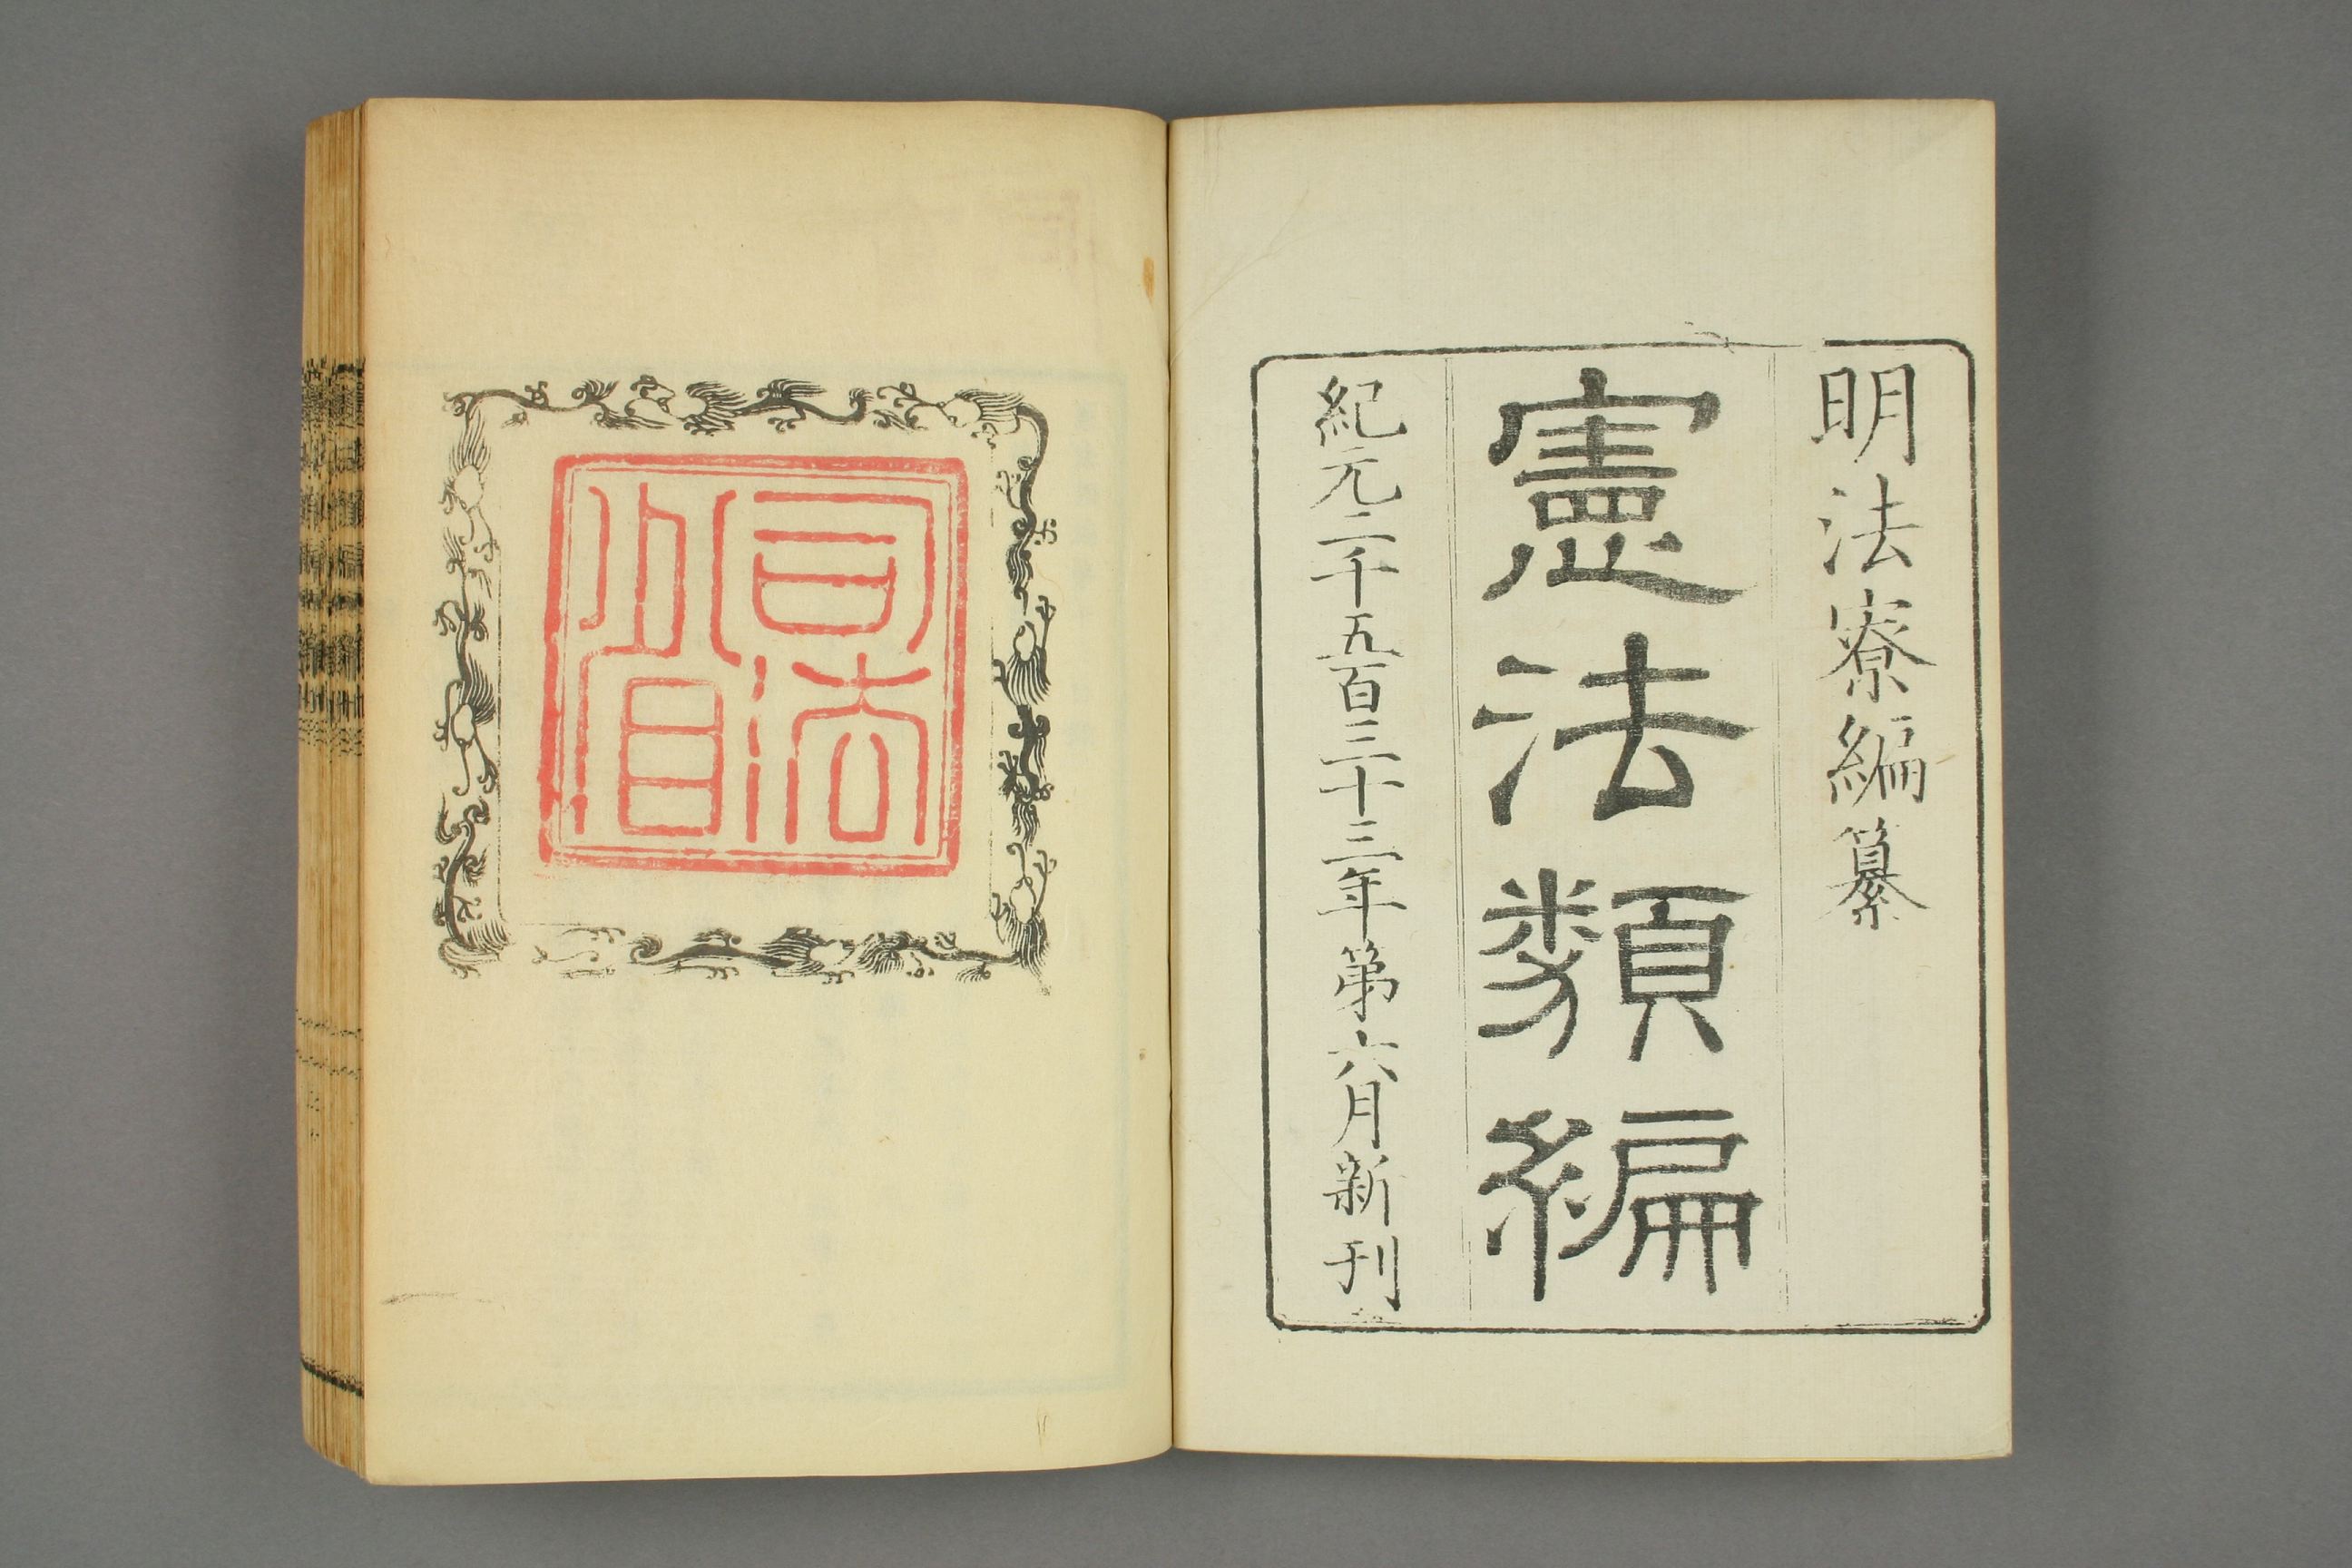 明法寮編纂
憲法類編
紀元二千五百三十三年第六月新刊
司法省